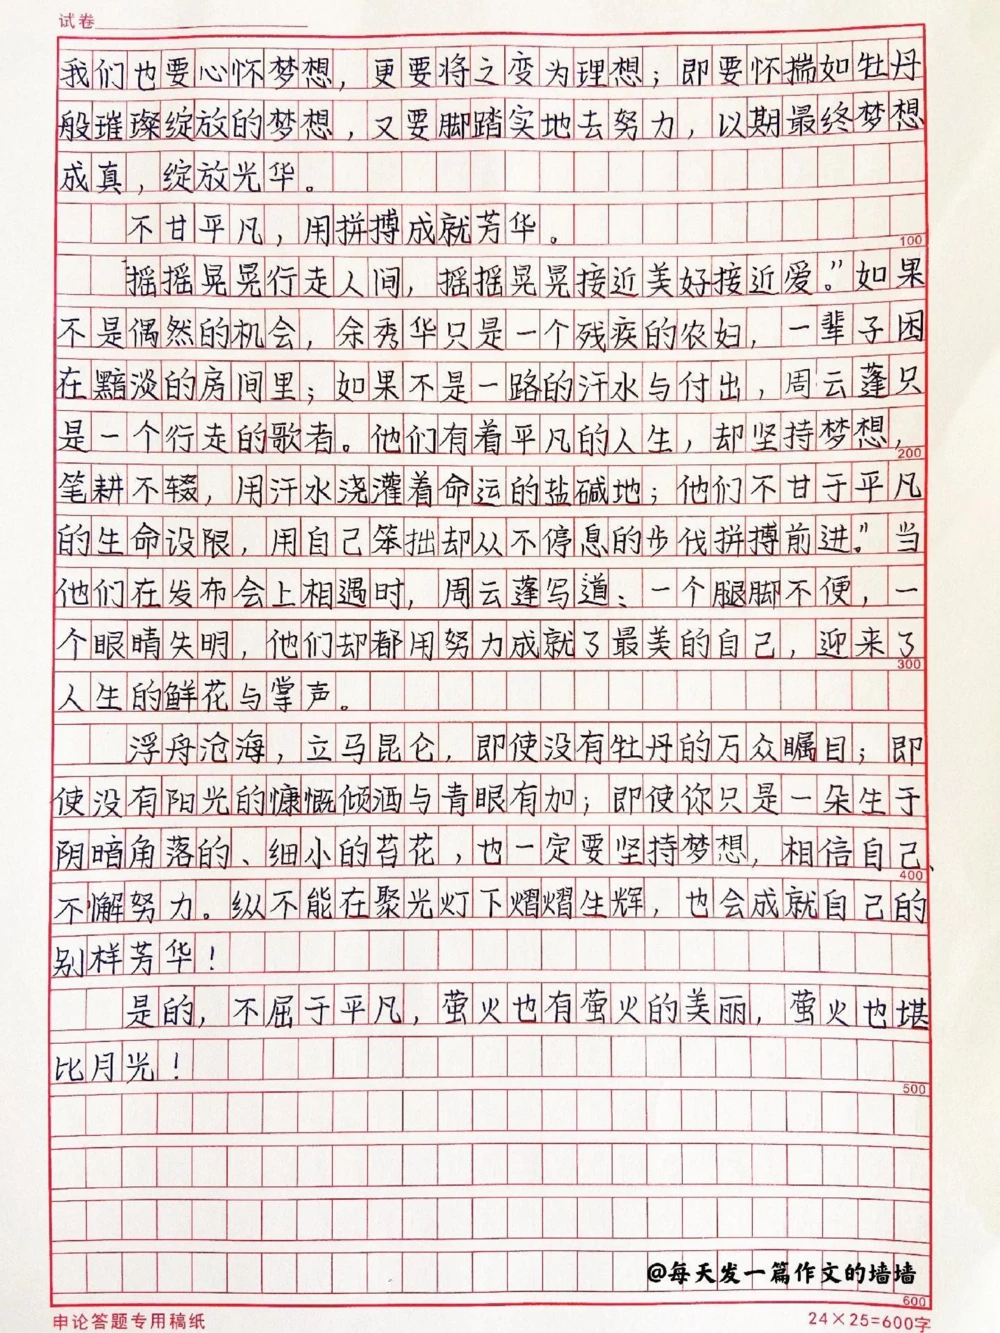 试卷
我们也要心怀梦想，更要将之变为理想；即要怀揣如牡丹
般璀璨绽放的梦想，又要脚踏实地去努力，以期最终梦想
成真，绽放光华。
不甘平凡，用拼搏成就芳华。
100
“摇摇晃晃行走人间，摇摇晃晃接近美好接近爱。”如果
不是偶然的机会，余秀华只是一个残疾的农妇，一辈子困
在黯淡的房间里；如果不是一路的汗水与付出，周云蓬只
是一个行走的歌者。他们有着平凡的人生，却坚持梦想，
200
笔耕不辍，用汗水浇灌着命运的盐碱地；他们不甘于平凡
的生命设限，用自己笨拙却从不停息的步伐拼搏前进。”当
他们在发布会上相遇时，周云蓬写道：一个腿脚不便，一
个眼睛失明，他们却都用努力成就了最美的自己，迎来了
300
人生的鲜花与掌声。
浮舟沧海，立马昆仑，即使没有牡丹的万众瞩目；即
使没有阳光的慷慨倾洒与青眼有加；即使你只是一朵生于
阴暗角落的、细小的苔花，也一定要坚持梦想，相信自己、
400
不懈努力。纵不能在聚光灯下熠熠生辉，也会成就自己的
别样芳华！
是的，不屈于平凡，萤火也有萤火的美丽，萤火也堪
比月光！
500
@每天发一篇作文的墙墙
600
申论答题专用稿纸
24×25=600字